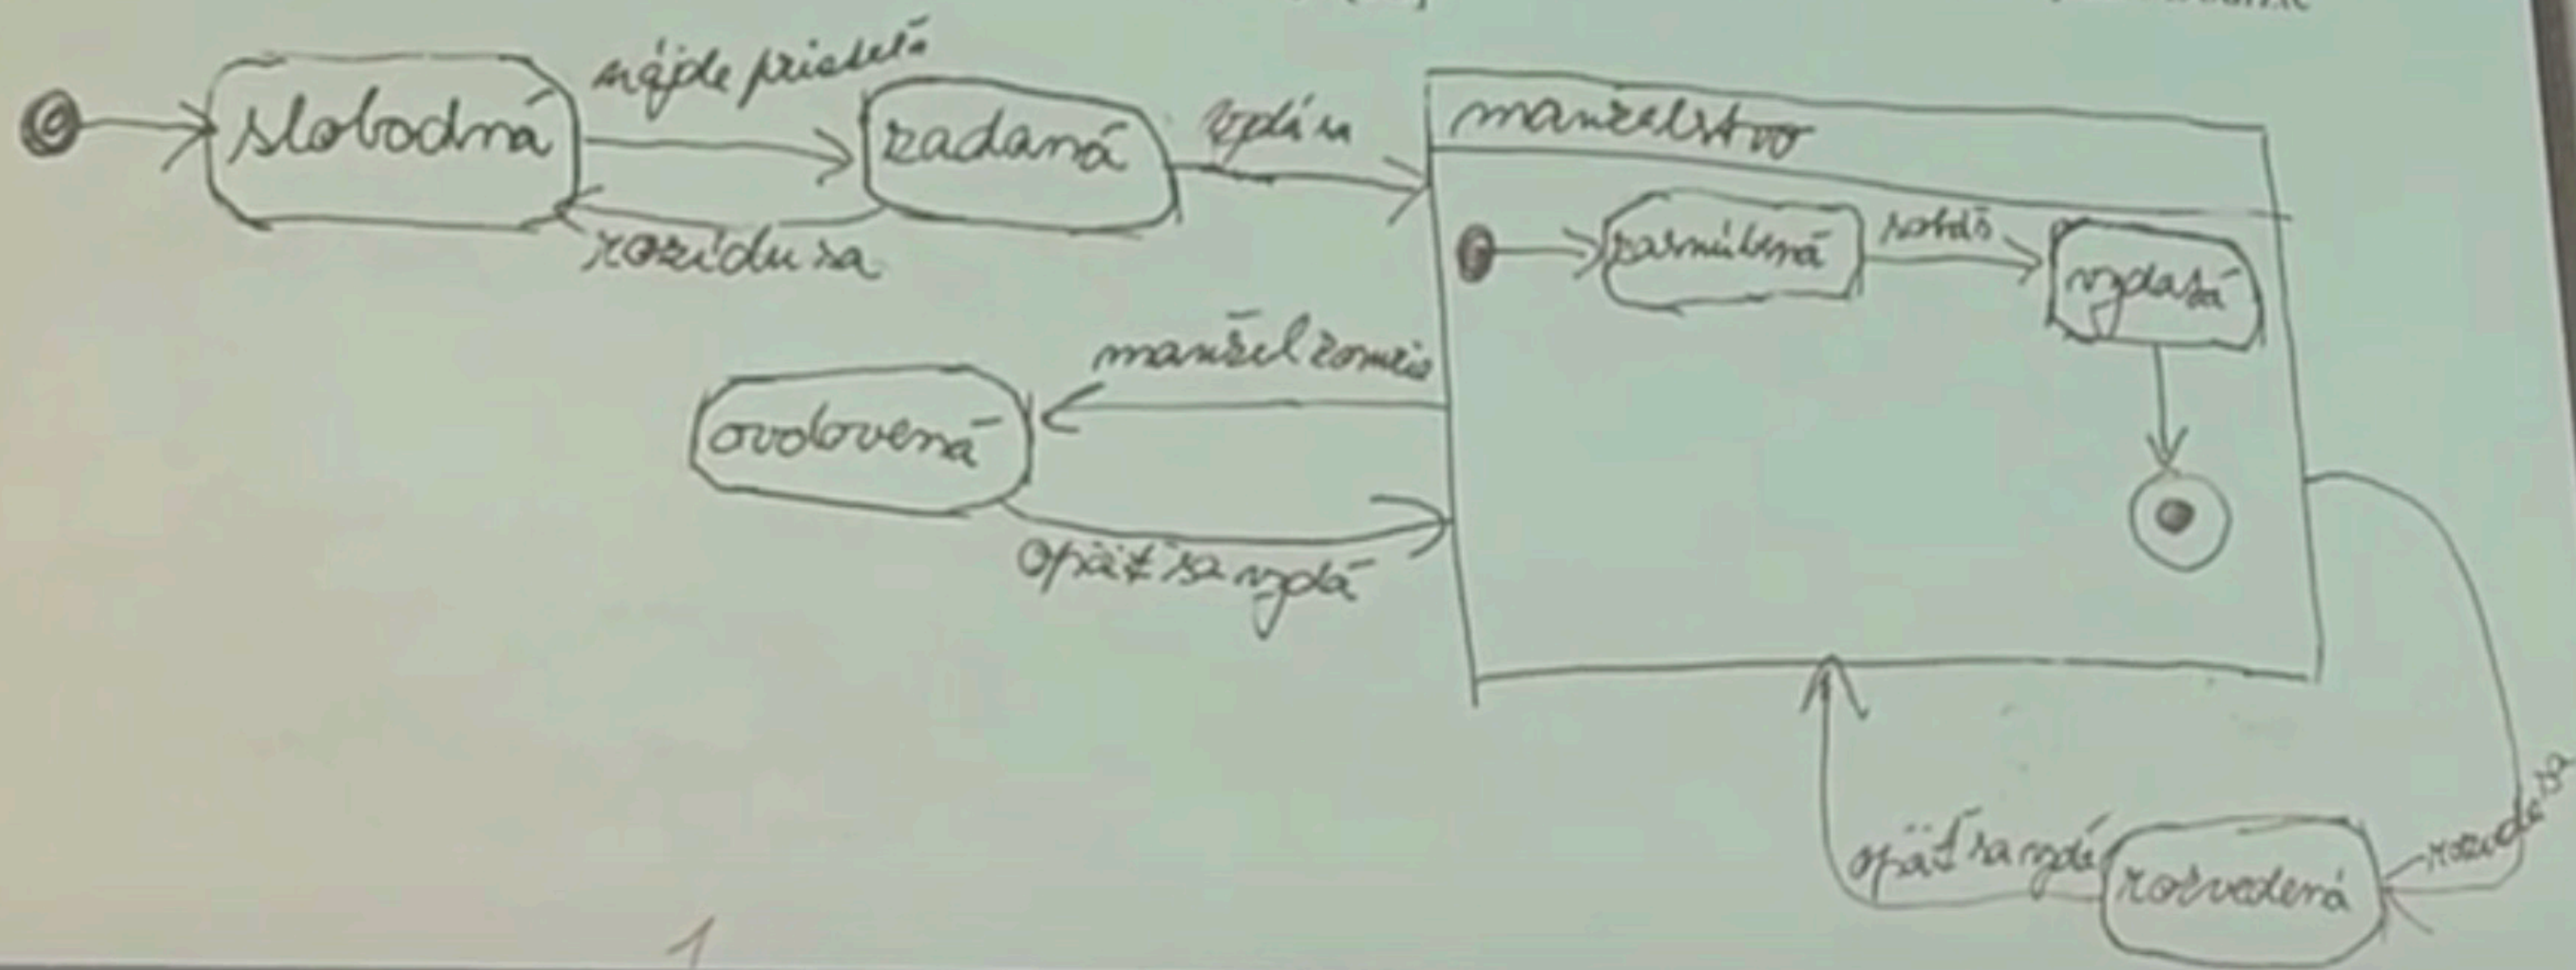 slobodná
nájde priateľa
zadaná
vydá sa
rozídu sa
manželstvo
zasnúbená
sobáš
vydatá
manžel zomrie
ovdovená
opäť sa vydá
opäť sa vydá
rozvedená
1